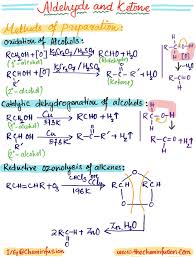 Aldehyde and Ketone
Methods of preparation:
Oxidation of Alcohols:
RCH₂OH + [O] K₂Cr₂O₇/H₂SO₄ RCHO + H₂O
(1°-alcohol) (Aldehyde)
RCHOH + [O] K₂Cr₂O₇/H₂SO₄ R-C-R' + H₂O
R' O
(2°-alcohol) (Ketone)
Catalytic dehydrogenation of alcohols:
RCH₂OH Cu 573K RCHO + H₂↑
(1°-alcohol)
RCHOH Cu 573K R-C-R' + H₂↑
R' O
(2°-alcohol)
Reductive Ozonolysis of alkenes:
RCH=CHR + O₃ 196K
Zn, H₂O
2RC-H + ZnO
O
www.thecheminfusion.com